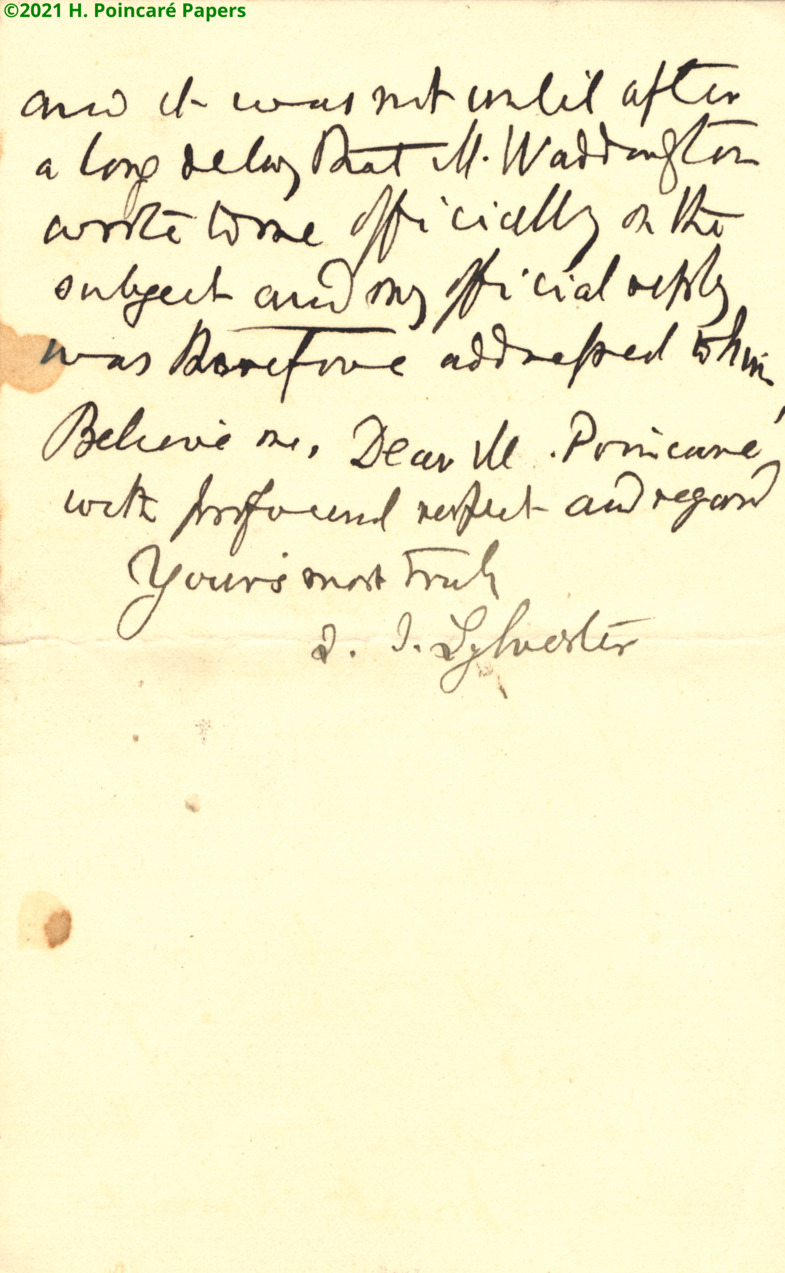 ©2021 H. Poincaré Papers
and it was not until after
a long delay that M. Waddington
wrote to me officially on the
subject and my official reply
was therefore addressed to him
Believe me, Dear M. Poincaré
with profound respect and regard
Yours most truly
J. J. Sylvester